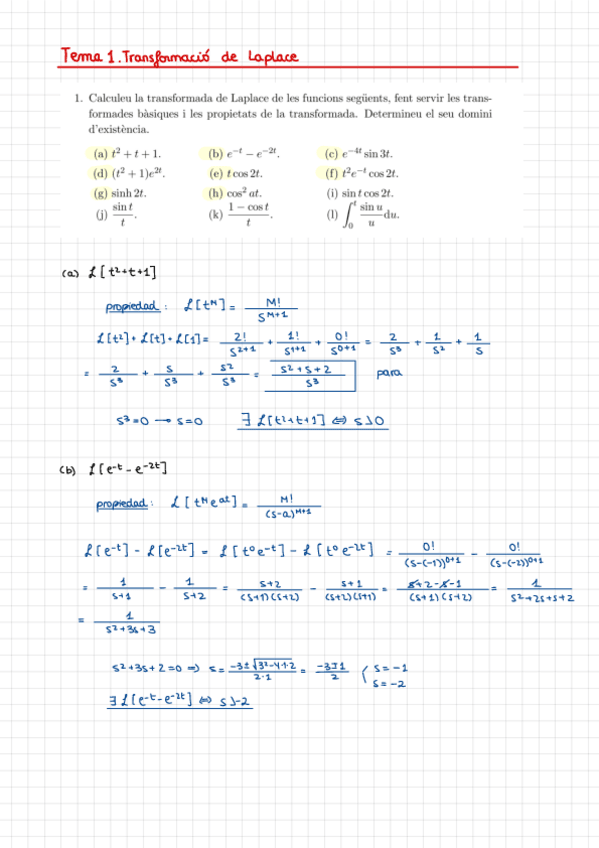 Tema 1. Transformació de Laplace
1. Calculeu la transformada de Laplace de les funcions següents, fent servir les trans-
formades bàsiques i les propietats de la transformada. Determineu el seu domini
d'existència.
(a) t² + t + 1. (b) e^{-t} − e^{-2t}. (c) e^{-4t} sin 3t.
(d) (t² + 1)e^{2t}. (e) t cos 2t. (f) t²e^{-t} cos 2t.
(g) sinh 2t. (h) cos² at. (i) sin t cos 2t.
(j) sin t / t. (k) (1 − cos t) / t. (l) ∫₀ᵗ (sin u / u) du.
(a) ℒ[t²+t+1]
propiedad: ℒ[t^M] = M! / s^{M+1}
ℒ[t²] + ℒ[t] + ℒ[1] = 2!/s^{2+1} + 1!/s^{1+1} + 0!/s^{0+1} = 2/s³ + 1/s² + 1/s
= 2/s³ + s/s³ + s²/s³ = (s²+s+2)/s³ para
s³=0 → s=0 ∃ ℒ[t²+t+1] ⇔ s>0
(b) ℒ[e^{-t} - e^{-2t}]
propiedad: ℒ[t^M e^{at}] = M! / (s-a)^{M+1}
ℒ[e^{-t}] - ℒ[e^{-2t}] = ℒ[t⁰e^{-t}] - ℒ[t⁰e^{-2t}] = 0!/(s-(-1))^{0+1} - 0!/(s-(-2))^{0+1}
= 1/(s+1) - 1/(s+2) = (s+2)/((s+1)(s+2)) - (s+1)/((s+2)(s+1)) = (s+2-s-1)/((s+1)(s+2)) = 1/(s²+2s+s+2)
= 1/(s²+3s+3)
s²+3s+2=0 ⇒ s = (-3±√(3²-4·1·2))/(2·1) = (-3±1)/2 { s=-1
s=-2
∃ ℒ[e^{-t}-e^{-2t}] ⇔ s>-2